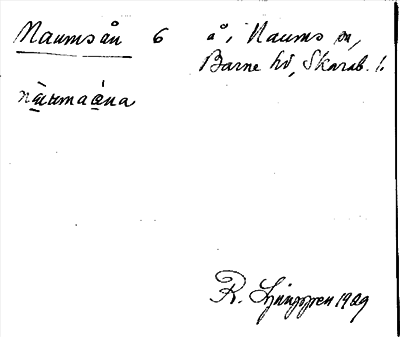 Naumsån 6 å i Naums sn,
Barne hd, Skarab. l.
R. Ljunggren 1929